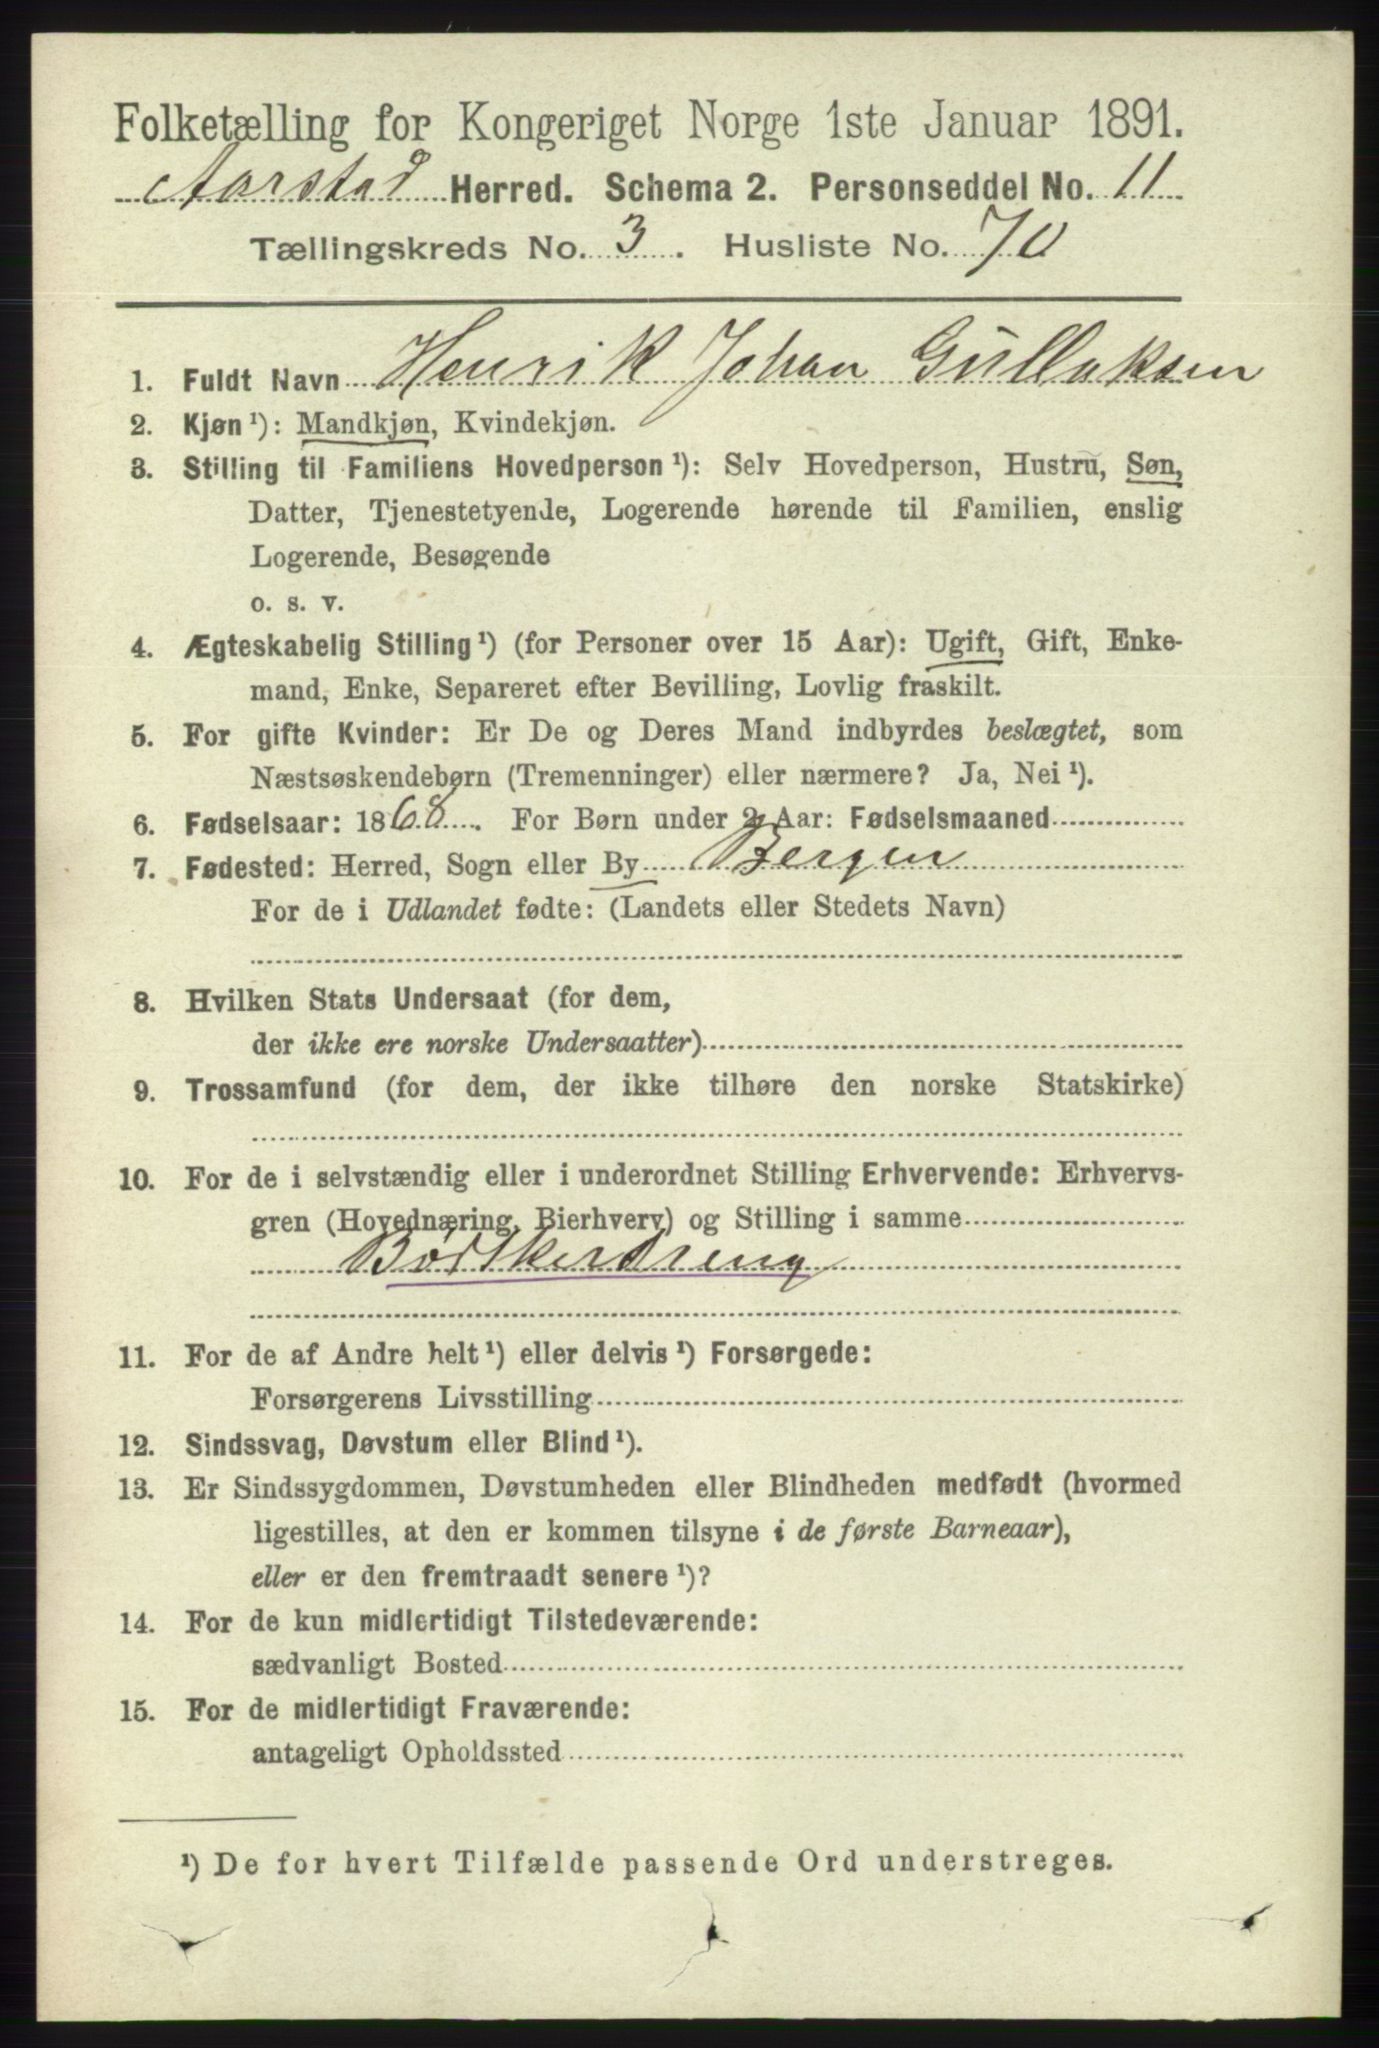 Folketælling for Kongeriget Norge 1ste Januar 1891.
Aarstad Herred. Schema 2. Personseddel No. 11
Tællingskreds No. 3. Husliste No. 70
1. Fuldt Navn Henrik Johan Gullaksen
2. Kjøn ¹): Mandkjøn, Kvindekjøn.
3. Stilling til Familiens Hovedperson ¹): Selv Hovedperson, Hustru, Søn,
Datter, Tjenestetyende, Logerende hørende til Familien, enslig
Logerende, Besøgende
o. s. v.
4. Ægteskabelig Stilling ¹) (for Personer over 15 Aar): Ugift, Gift, Enke-
mand, Enke, Separeret efter Bevilling, Lovlig fraskilt.
5. For gifte Kvinder: Er De og Deres Mand indbyrdes beslægtet, som
Næstsøskendebørn (Tremenninger) eller nærmere? Ja, Nei ¹).
6. Fødselsaar: 1868. For Børn under 2 Aar: Fødselsmaaned
7. Fødested: Herred, Sogn eller By Bergen
For de i Udlandet fødte: (Landets eller Stedets Navn)
8. Hvilken Stats Undersaat (for dem,
der ikke ere norske Undersaatter)
9. Trossamfund (for dem, der ikke tilhøre den norske Statskirke)
10. For de i selvstændig eller i underordnet Stilling Erhvervende: Erhvervs-
gren (Hovednæring, Bierhverv) og Stilling i samme
Bødkerdreng
11. For de af Andre helt ¹) eller delvis ¹) Forsørgede:
Forsørgerens Livsstilling
12. Sindssvag, Døvstum eller Blind ¹).
13. Er Sindssygdommen, Døvstumheden eller Blindheden medfødt (hvormed
ligestilles, at den er kommen tilsyne i de første Barneaar),
eller er den fremtraadt senere ¹)?
14. For de kun midlertidigt Tilstedeværende:
sædvanligt Bosted
15. For de midlertidigt Fraværende:
antageligt Opholdssted
¹) De for hvert Tilfælde passende Ord understreges.